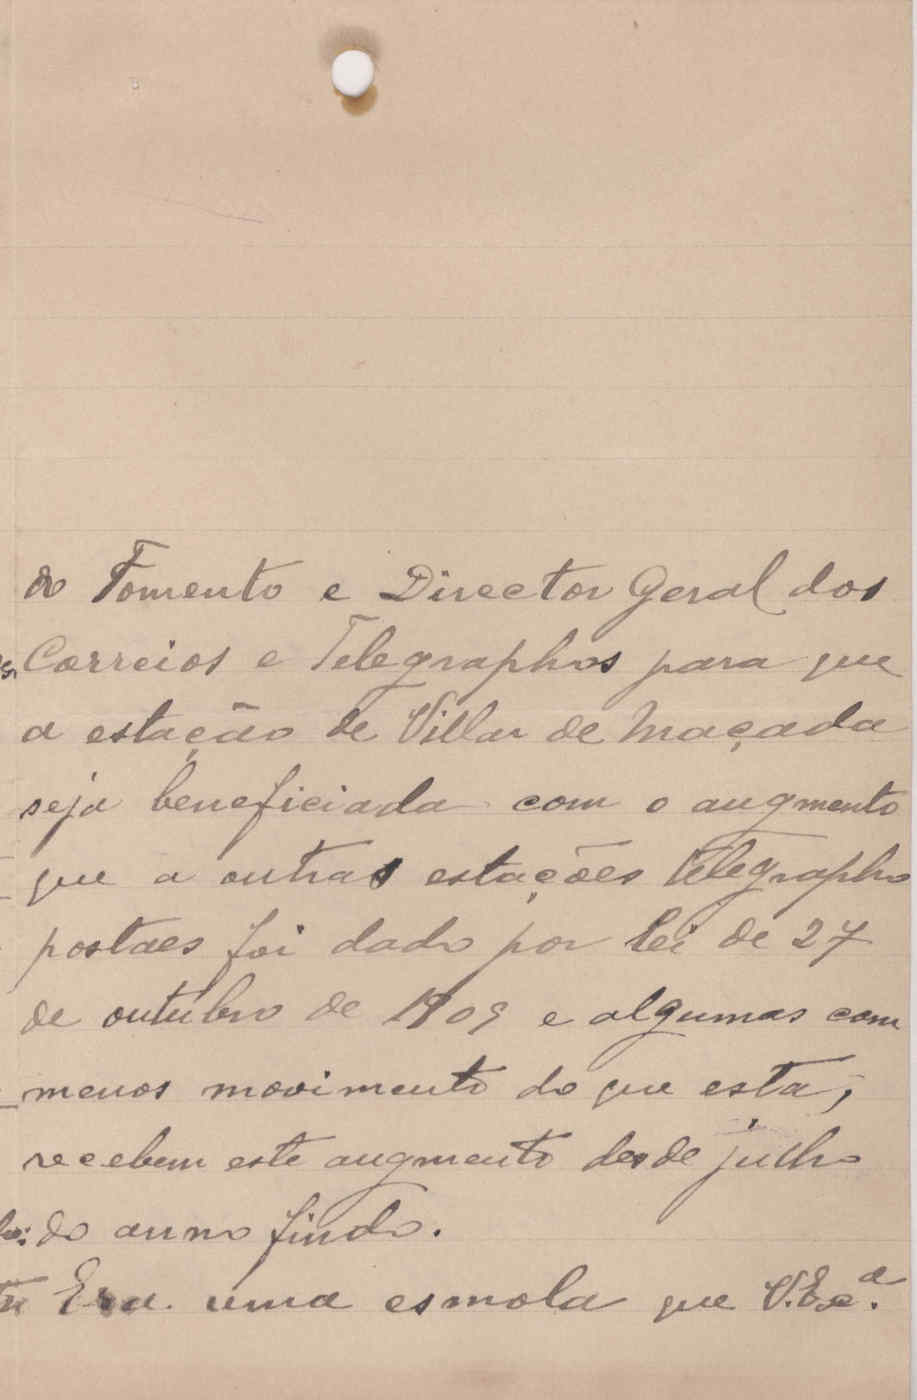 do Fomento e Director Geral dos
Correios e Telegraphos para que
a estação de Villar de Maçada
seja beneficiada com o augmento
que a outras estações telegrapho
postaes foi dado por lei de 27
de outubro de 1909 e algumas com
menos movimento do que esta,
recebem este augmento desde julho
do anno findo.
Era uma esmola que V. Exª.